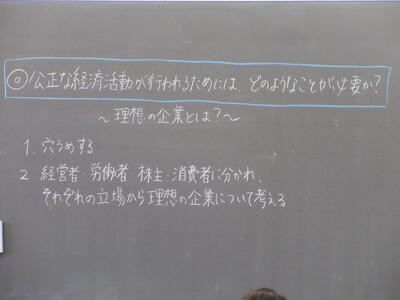 ◎公正な経済活動が行われるためには、どのようなことが必要か?
～理想の企業とは?～
1. 穴うめする
2 経営者・労働者 株主・消費者に分かれ、
それぞれの立場から理想の企業について考える